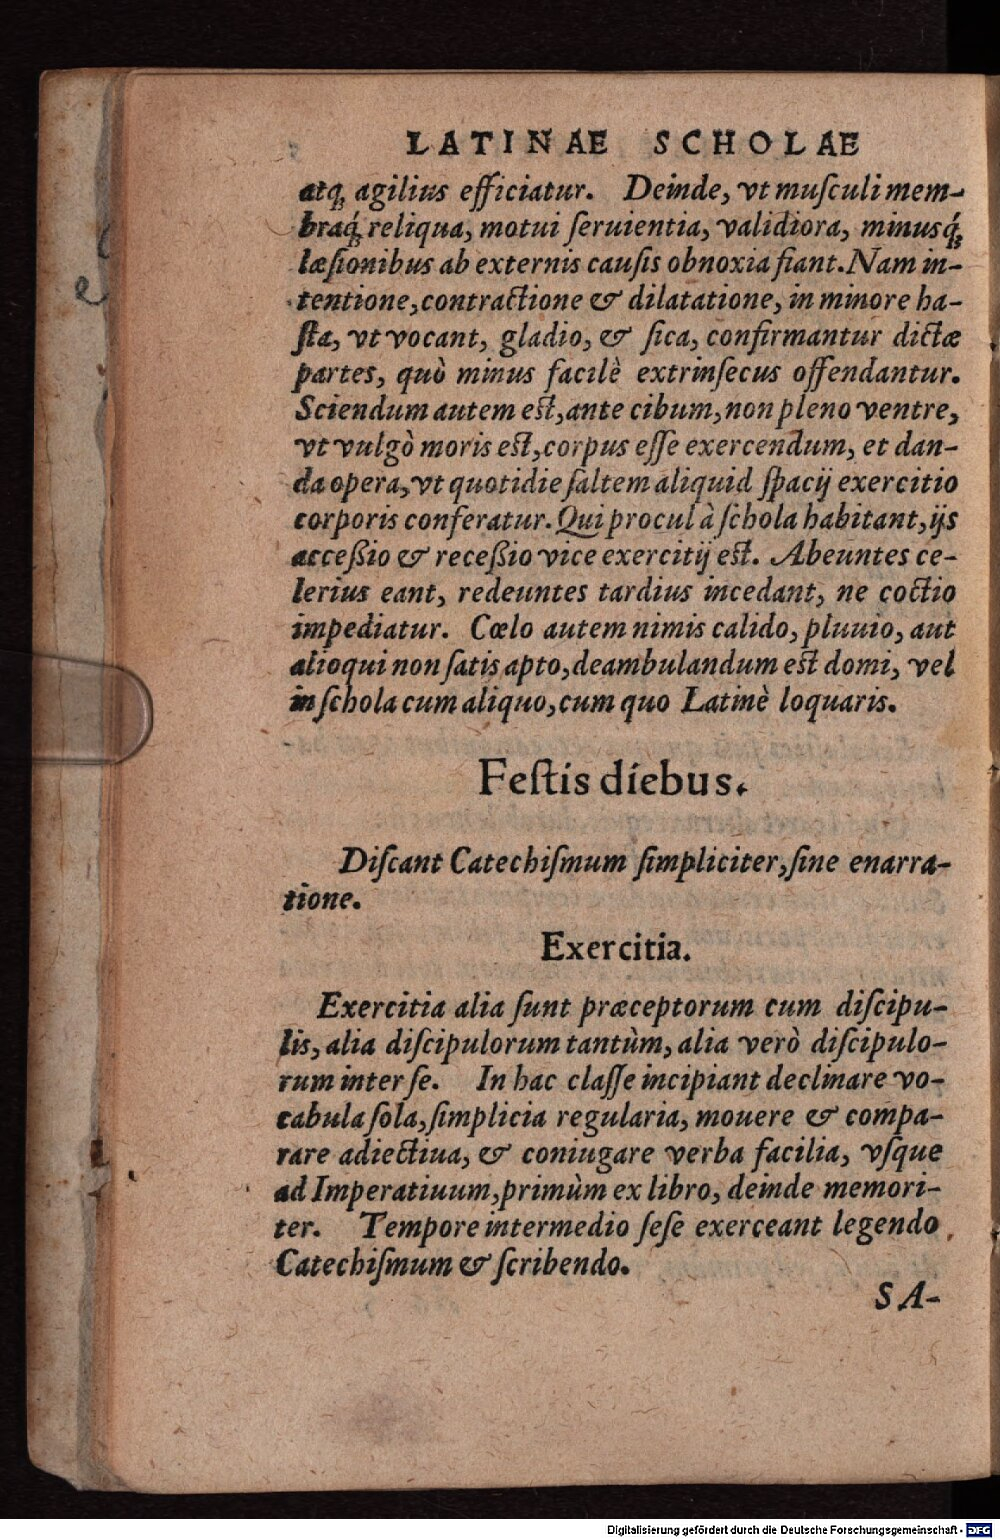 LATINAE SCHOLAE
atq; agilius efficiatur. Deinde, vt muſculi mem-
braq́; reliqua, motui ſeruientia, validiora, minusq́;
læſionibus ab externis cauſis obnoxia fiant. Nam in-
tentione, contractione & dilatatione, in minore ha-
ſta, vt vocant, gladio, & ſica, confirmantur dictæ
partes, quò minus facilè extrinſecus offendantur.
Sciendum autem eſt, ante cibum, non pleno ventre,
vt vulgò moris eſt, corpus eſſe exercendum, et dan-
da opera, vt quotidie ſaltem aliquid ſpacij exercitio
corporis conferatur. Qui procul à ſchola habitant, ijs
acceßio & receßio vice exercitij eſt. Abeuntes ce-
lerius eant, redeuntes tardius incedant, ne coctio
impediatur. Cœlo autem nimis calido, pluuio, aut
alioqui non ſatis apto, deambulandum eſt domi, vel
in ſchola cum aliquo, cum quo Latinè loquaris.
Feſtis diebus.
Diſcant Catechiſmum ſimpliciter, ſine enarra-
tione.
Exercitia.
Exercitia alia ſunt præceptorum cum diſcipu-
lis, alia diſcipulorum tantùm, alia verò diſcipulo-
rum inter ſe. In hac claſſe incipiant declinare vo-
cabula ſola, ſimplicia regularia, mouere & compa-
rare adiectiua, & coniugare verba facilia, vſque
ad Imperatiuum, primùm ex libro, deinde memori-
ter. Tempore intermedio ſeſe exerceant legendo
Catechiſmum & ſcribendo.
SA-
Digitalisierung gefördert durch die Deutsche Forschungsgemeinschaft - DFG